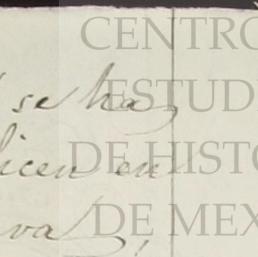 CENTRO
ESTUD
DE HISTO
DE MEX
se haz
licen en
va